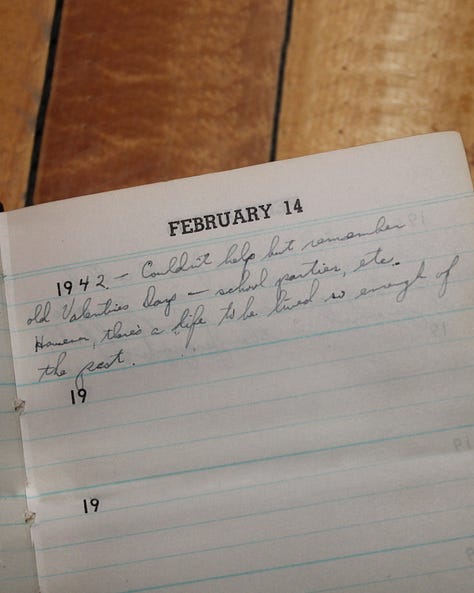 FEBRUARY 14
1942. — Couldn't help but remember
old Valentines Days — school parties, etc.
However, there's a life to be lived so enough of
the past.
19
19